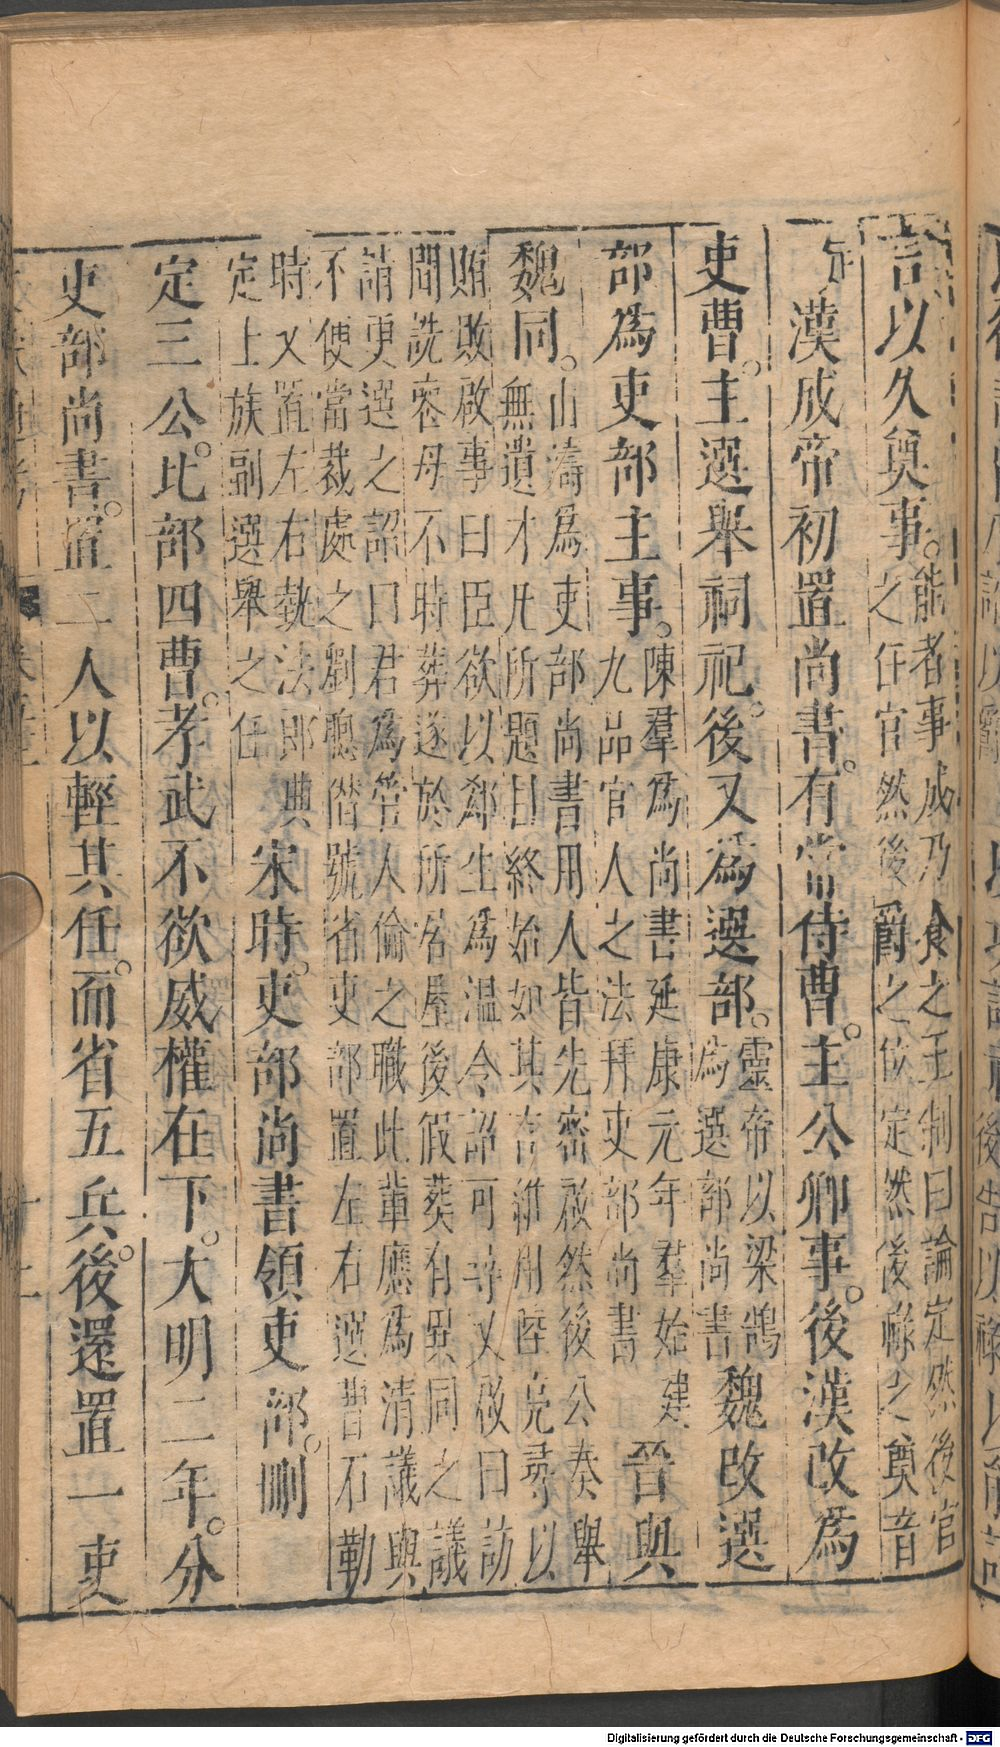 言以久奠事。
能者事成乃食之王制曰論定然後官
之任官然後爵之位定然後祿之奠音
定
漢成帝初置尚書。有常侍曹。主公卿事。後漢改為
吏曹。主選舉祠祀。後又為選部。
靈帝以梁鵠
為選部尚書
魏改選
部為吏部主事。
陳羣為尚書延康元年羣始建
九品官人之法拜吏部尚書
晉與
魏同。
山濤為吏部尚書用人皆先密啟然後公奏舉
無遺才凡所題目終始如其言唯用陸亮尋以
賄敗啟事曰臣欲以郄生為溫令詔可尋又啟曰訪
聞詵喪母不時葬遂於所居屋後假葬有異同之議
請更選之詔曰君為管人倫之職此輩應為清議與
不便當裁處之劉聰僭號省吏部置左右選曹石勒
時又置左右執法郎典
定上族副選舉之任
宋時。吏部尚書領吏部。刪
定三公。比部四曹。孝武不欲威權在下。大明二年。分
吏部尚書。置二人以輕其任。而省五兵。後還置一吏
Digitalisierung gefördert durch die Deutsche Forschungsgemeinschaft - DFG